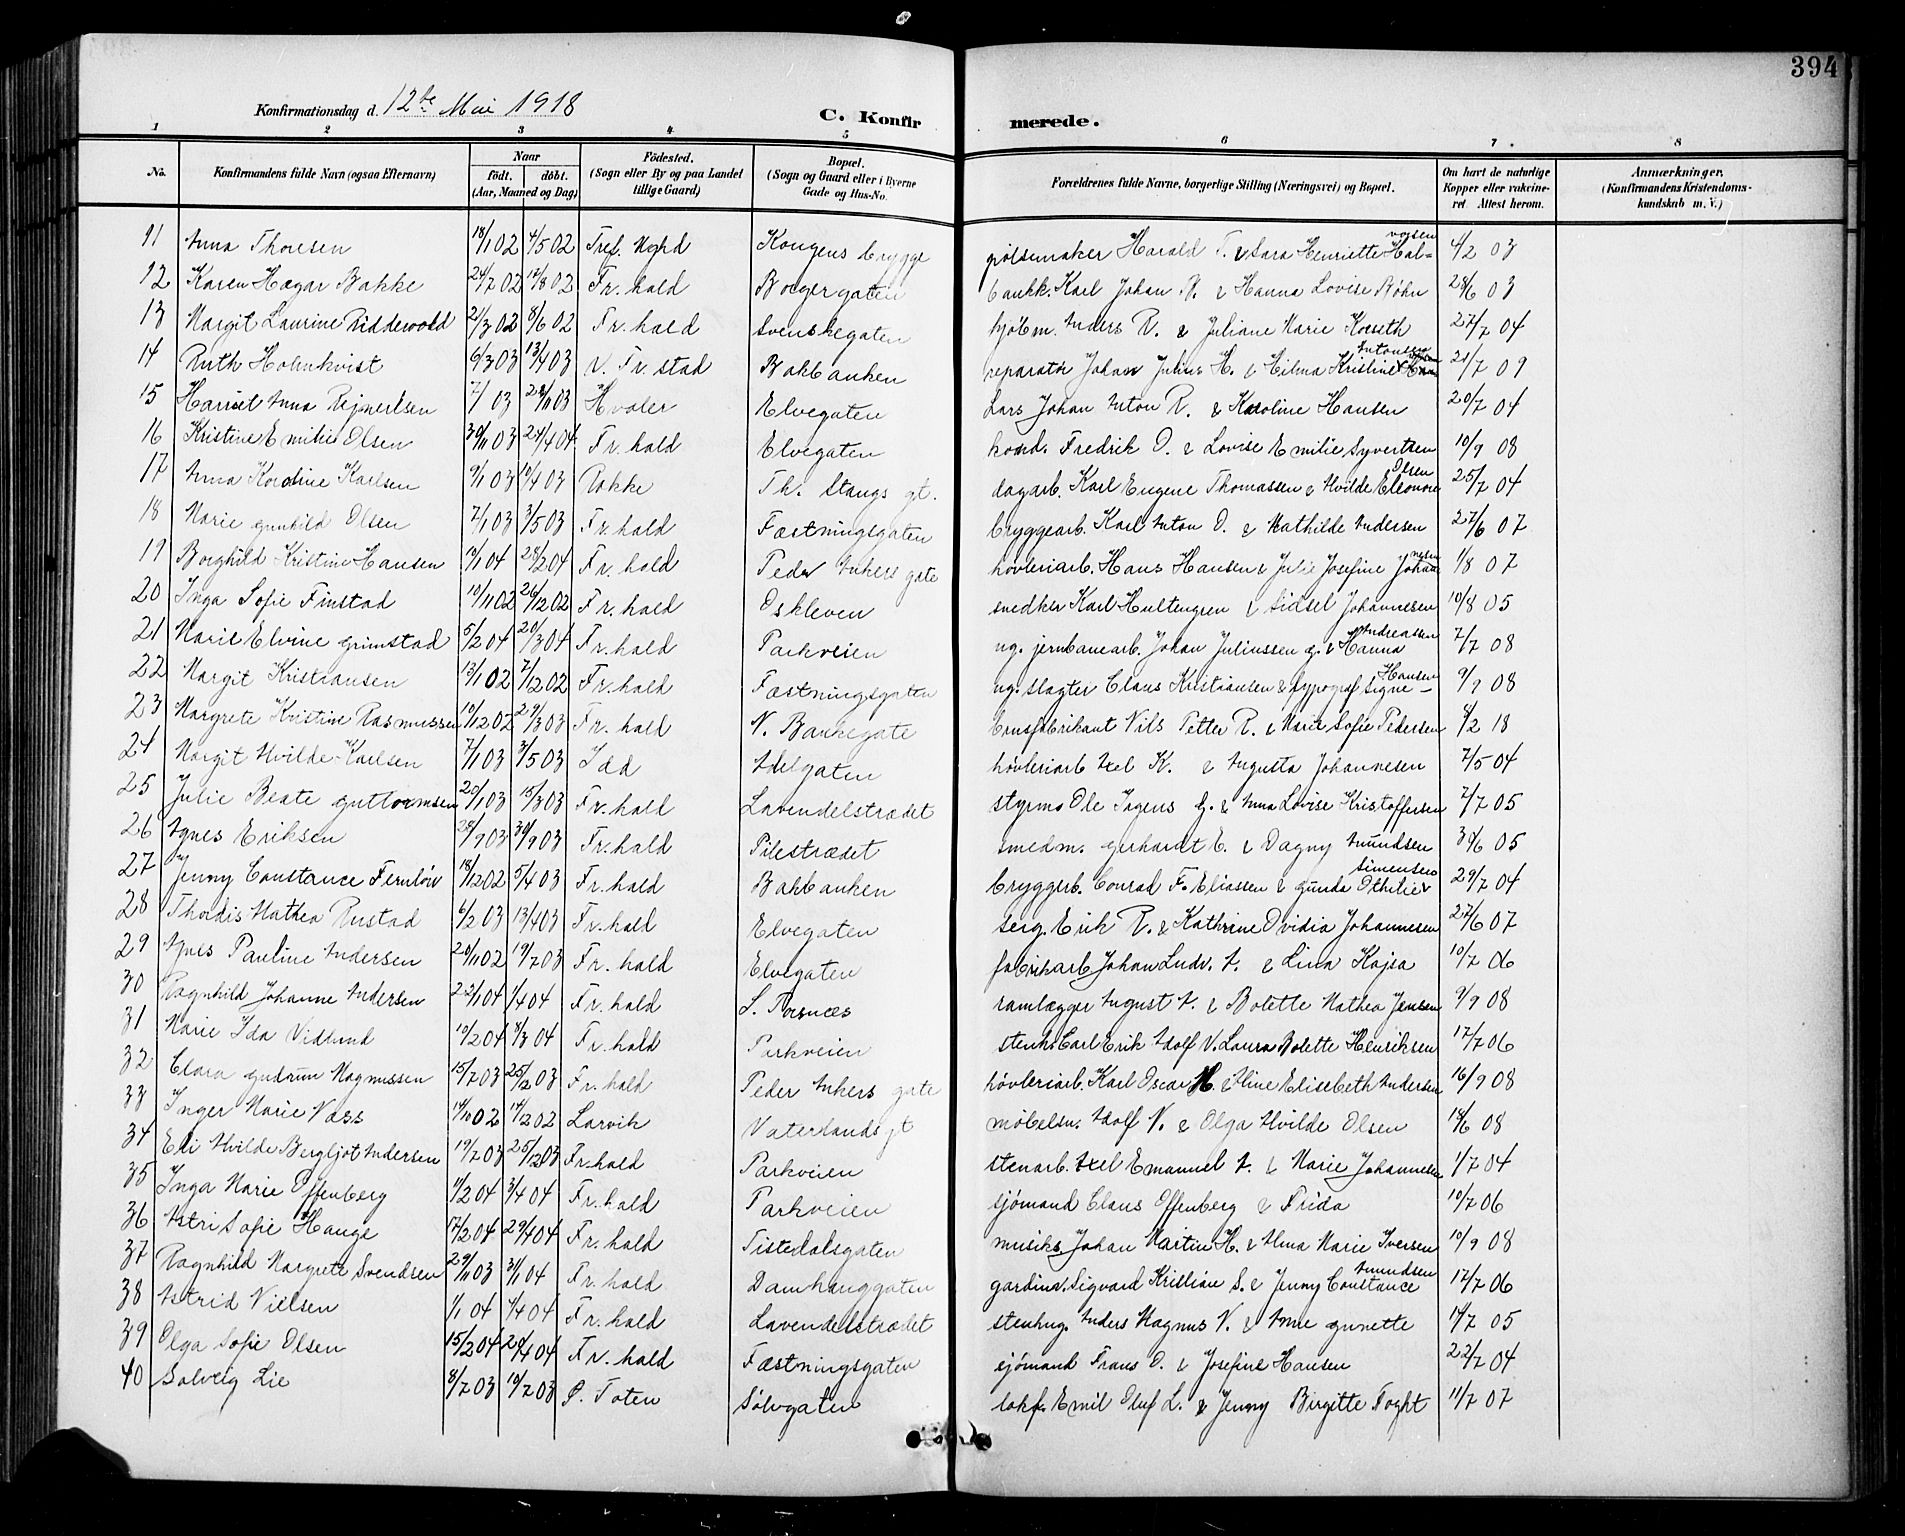 394
Konfirmationsdag d. 12te Mai 1918 C. Konfirmerede.
1 2 3 4 5 6 7 8
No. Konfirmandens fulde Navn (ogsaa Efternavn) Naar født. døbt. (Aar, Maaned og Dag) Födested. (Sogn eller By og paa Landet tillige Gaard) Bopæl. (Sogn og Gaard eller i Byerne Gade og Hus-No. Forældrenes fulde Navne, borgerlige Stilling (Næringsvei) og Bopæl. Om havt de naturlige Kopper eller vakcineret. Attest herom. Anmærkninger. (Konfirmandens Kristendomskundskab m. V.)
11 Anna Thoresen 18/1 02 4/5 02 Kongens brygge pølsemaker Harald T. & Sara Henriette Halvorsen 4/2 03
12 Karen Hagar Bakke 24/7 02 17/8 02 Fr.hald Borgergaten bankk. Karl Johan B. & Hanna Lovise Bøhn 28/6 03
13 Margit Laurine Riddewold 21/3 02 8/6 02 Fr.hald Svenskegaten kjøbm. Anders R. & Juliane Marie 27/7 04
14 Ruth Holmkvist 6/3 03 13/4 03 V. Fr.stad Bakbanken reparatør Johan Julius H. & Hilma Kristine Antonsen 21/7 09
15 Harriet Anna Rejnertsen 7/ 03 29/11 03 Hvaler Elvegaten Lars Johan Anton R. & Karoline Hansen 20/7 04
16 Kristine Emilie Olsen 30/11 03 24/4 04 Fr.hald Elvegaten kond. Fredrik O. & Lovise Emilie Syvertsen 10/9 08
17 Anna Karoline Karlsen 9/1 03 10/4 03 Rokke Th. Stangs gt. dagarb. Karl Eugene Thomassen & Alvilde Eleonore Olsen 25/7 04
18 Marie Gunhild Olsen 7/1 03 3/5 03 Fr.hald Fæstningsgaten bryggearb. Karl Anton O. & Mathilde Andersen 27/6 07
19 Borghild Kristine Hansen 10/1 04 28/2 04 Fr.hald Peder Ankers gate høvleriarb. Hans Hansen & Julie Josefine Johannesen 1/8 07
20 Inga Sofie Finstad 10/11 02 26/12 02 Fr.hald Oskleven snedker Karl Hultengren & Sidsel Johannesen 10/8 05
21 Marie Elvine Grimstad 5/2 04 20/3 04 Fr.hald Parkveien ug. jernbanearb. Johan Juliussen G. & Hanna Andreassen 7/7 08
22 Margit Kristiansen 13/1 02 7/12 02 Fr.hald Fæstningsgaten ug. slagter Claus Kristiansen & typograf Signe Hansen 9/9 08
23 Margrete Kristine Rasmussen 10/12 02 29/3 03 Fr.hald N. Bankegate brusfabrikant Nils Petter R. & Marie Sofie Pedersen 8/2 18
24 Margit Alvilde Karlsen 7/1 03 3/5 03 Idd Adelgaten høvleriarb Axel K. & Augusta Johannesen 7/5 04
25 Julie Beate Guttormsen 20/1 03 15/3 03 Fr.hald Lavendelstrædet styrm. Ole Ingens G. & Anna Lovise Kristoffersen 7/7 05
26 Agnes Eriksen 28/9 03 30/9 03 Fr.hald Pilestrædet smedm. Gerhardt E. & Dagny Amundsen 30/6 05
27 Jenny Constance Fernløv 18/12 02 5/4 03 Fr.hald Bakbanken bryggerb. Conrad F. Eliassen & Gunda Othilie Simensen 29/7 04
28 Thordis Mathea Rustad 6/2 03 13/4 03 Fr.hald Elvegaten serg. Erik R. & Kathrine Ovidia Johannesen 27/6 07
29 Agnes Pauline Andersen 20/11 02 19/7 03 Fr.hald Elvegaten fabrikarb. Johan Ludv. A. & Lina Kajsa 10/7 06
30 Ragnhild Johanne Andersen 22/1 04 1/4 04 Fr.hald L. Torsnæs ramlægger August A. & Bolette Mathea Jensen 9/9 08
31 Marie Ida Vidlund 10/2 04 8/3 04 Fr.hald Parkveien stenh. Carl Erik Adolf V. Laura Bolette Henriksen 17/7 06
32 Clara Gudrun Magnussen 15/7 03 25/12 03 Fr.hald Peder Ankers gate høvleriarb. Karl Oscar M. & Aline Elisebeth Andersen 16/9 08
33 Inger Marie Næss 14/10 02 14/12 02 Larvik Vaterlandsgt møbelsn. Adolf N. & Olga Alvilde Olsen 18/6 08
34 Eli Alvilde Bergljot Andersen 19/7 03 25/12 03 Fr.hald Parkveien stenarb. Axel Emanuel A. & Marie Johannesen 1/7 04
35 Inga Marie Offenberg 11/2 04 3/4 04 Fr.hald Parkveien sjømand Claus Offenberg & Frida 10/7 06
36 Astri Sofie Hauge 17/2 04 29/4 04 Fr.hald Tistedalsgaten musiks. Johan Martin H. & Alma Marie Iversen 10/9 08
37 Ragnhild Margrete Svendsen 29/11 03 31/1 04 Fr.hald Damhauggaten gardinv. Sigvard Kristian S. & Jenny Constance Amundsen 17/7 06
38 Astrid Nielsen 1/1 04 4/4 04 Fr.hald Lavendelstrædet stenhug. Anders Magnus N. & Anne Gunette 14/7 05
39 Olga Sofie Olsen 15/2 04 20/4 04 Fr.hald Fæstningsgaten sjømand Frans O. & Josefine Hansen 22/7 04
40 Solveig Lie 8/7 03 19/7 03 Ø. Toten Sølvgaten lokf. Emil Oluf L. & Jenny Birgitte Foght 11/7 07